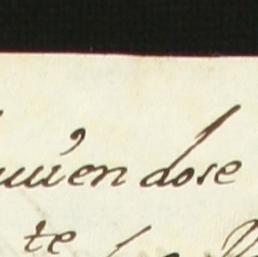 uuien dose
te